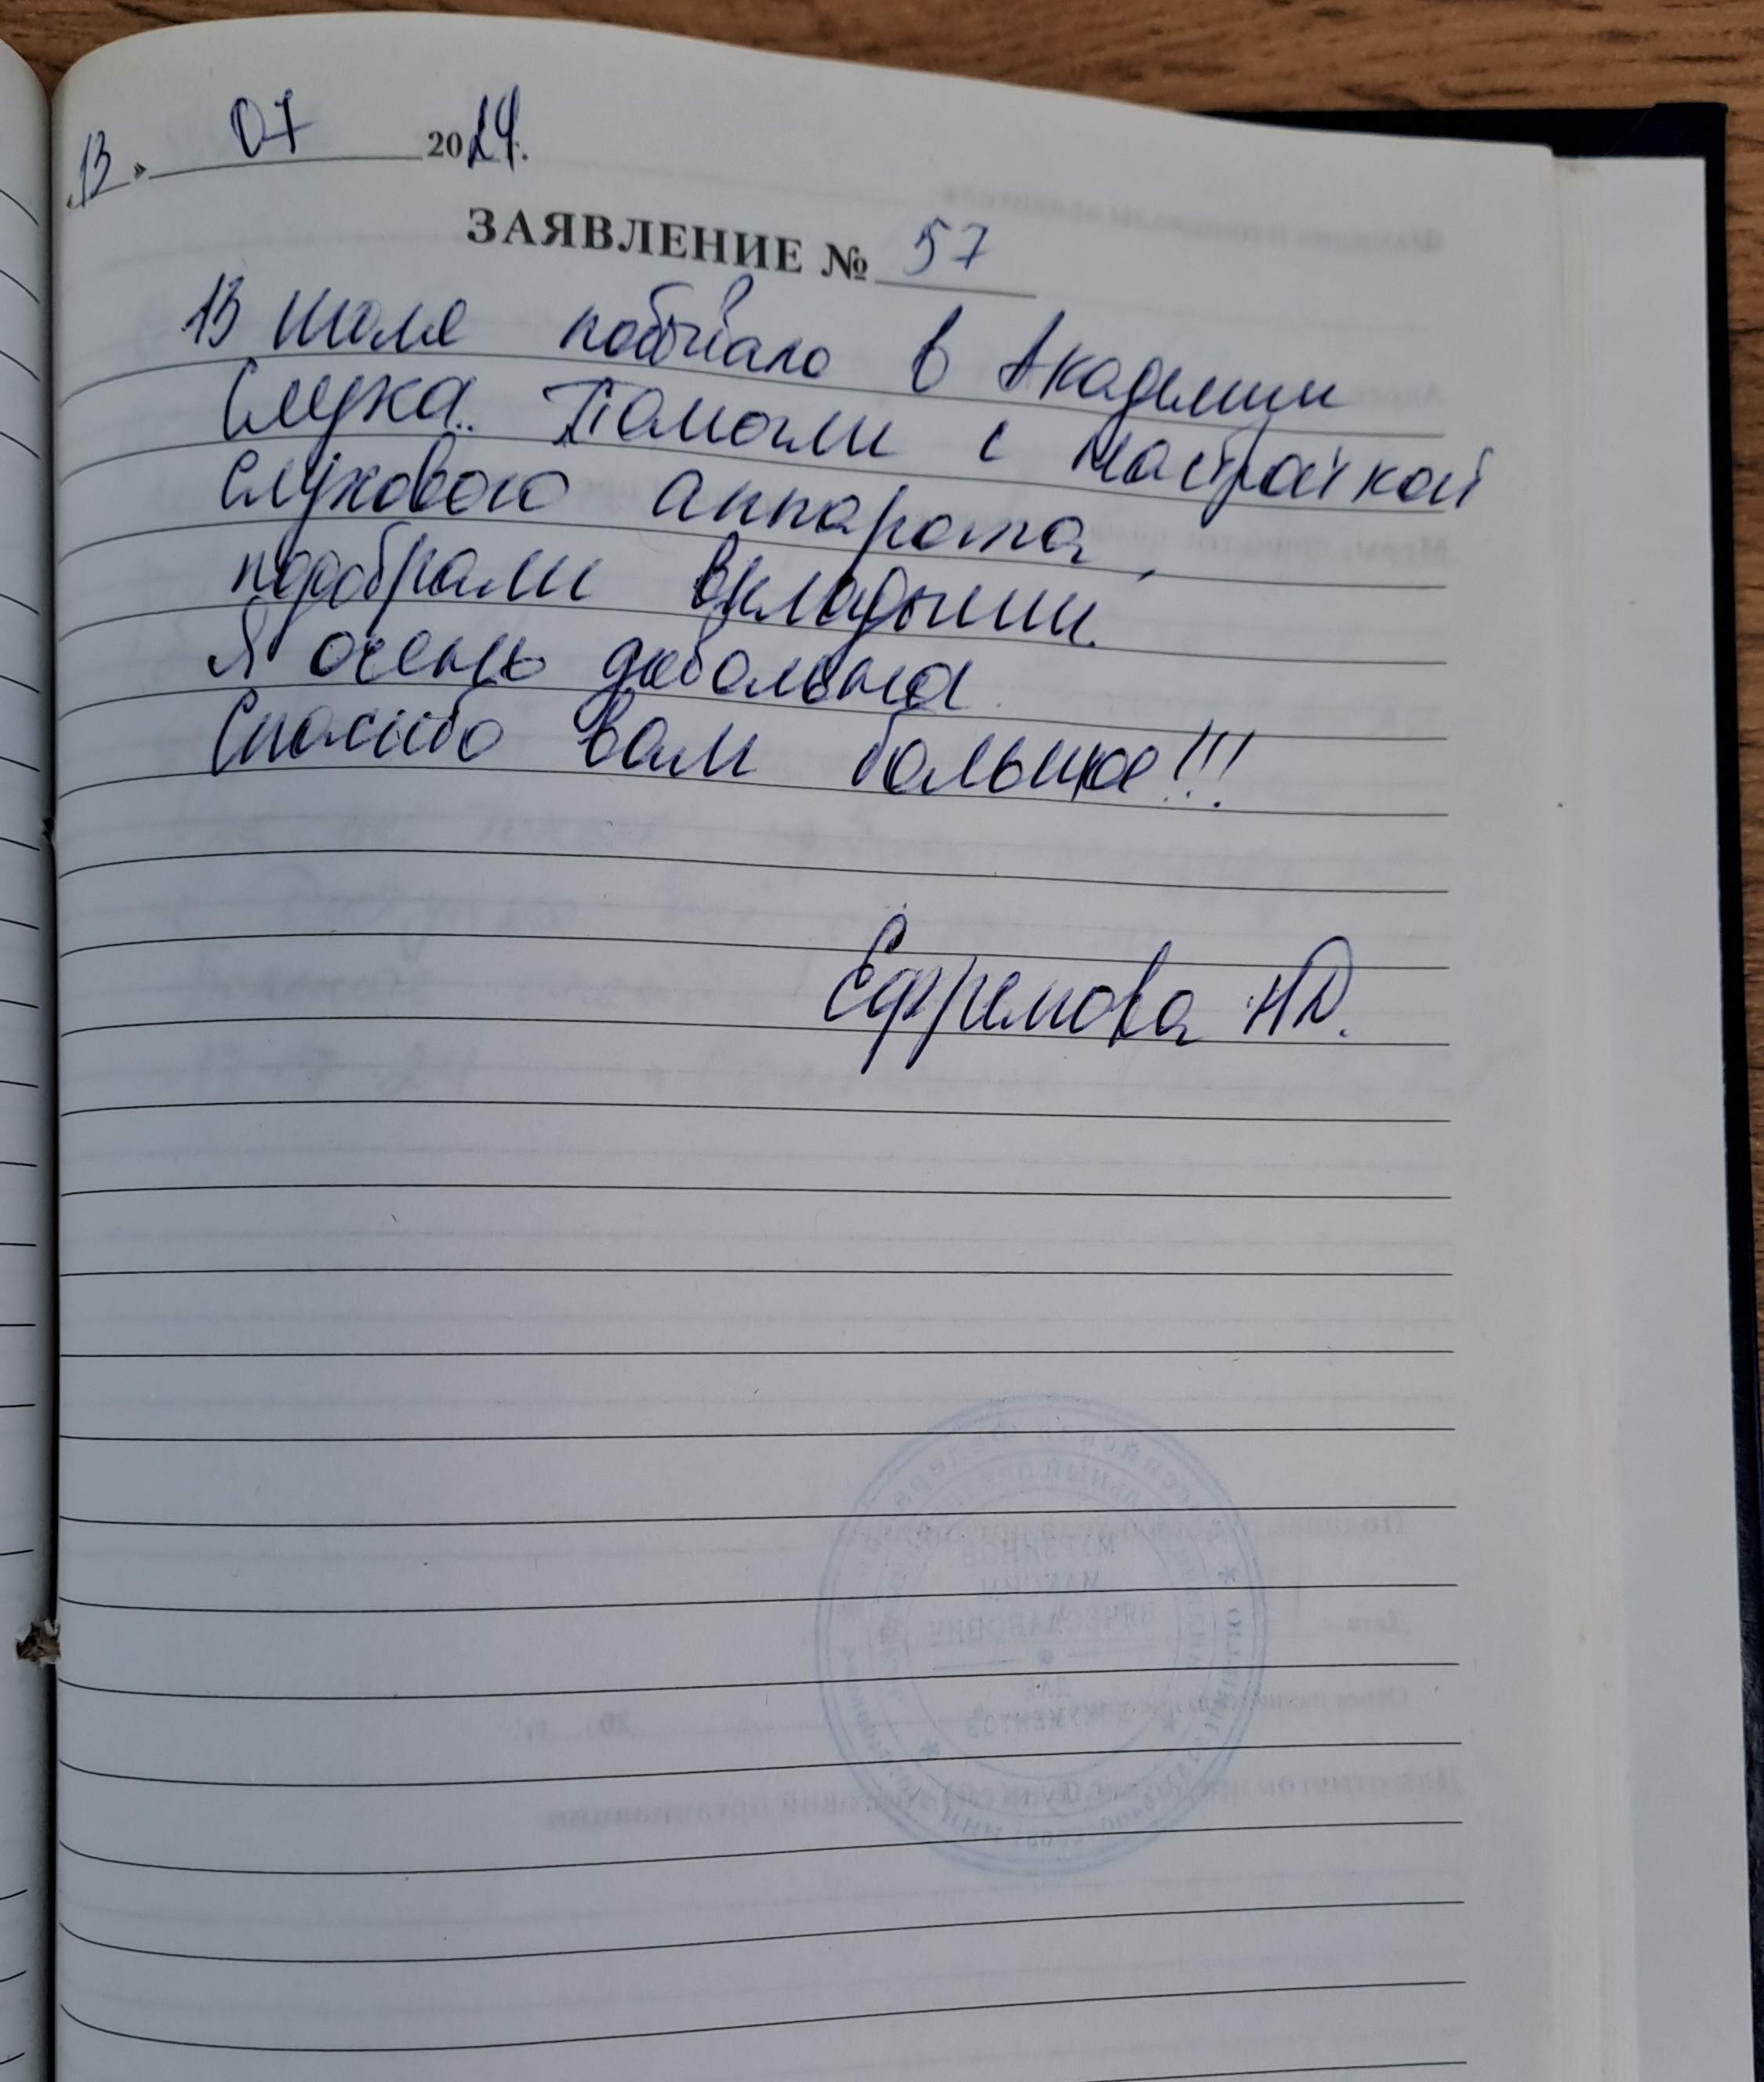 13 » 07 2024 г.
ЗАЯВЛЕНИЕ № 57
13 июля побывала в Академии
Слуха. Помогли с настройкой
слухового аппарата,
подобрали вкладыши.
Я очень довольна
Спасибо вам большое!!!
Ефремова Н.Д.
МАКСИМ
ВЯЧЕСЛАВОВИЧ
ДЛЯ
ДОКУМЕНТОВ